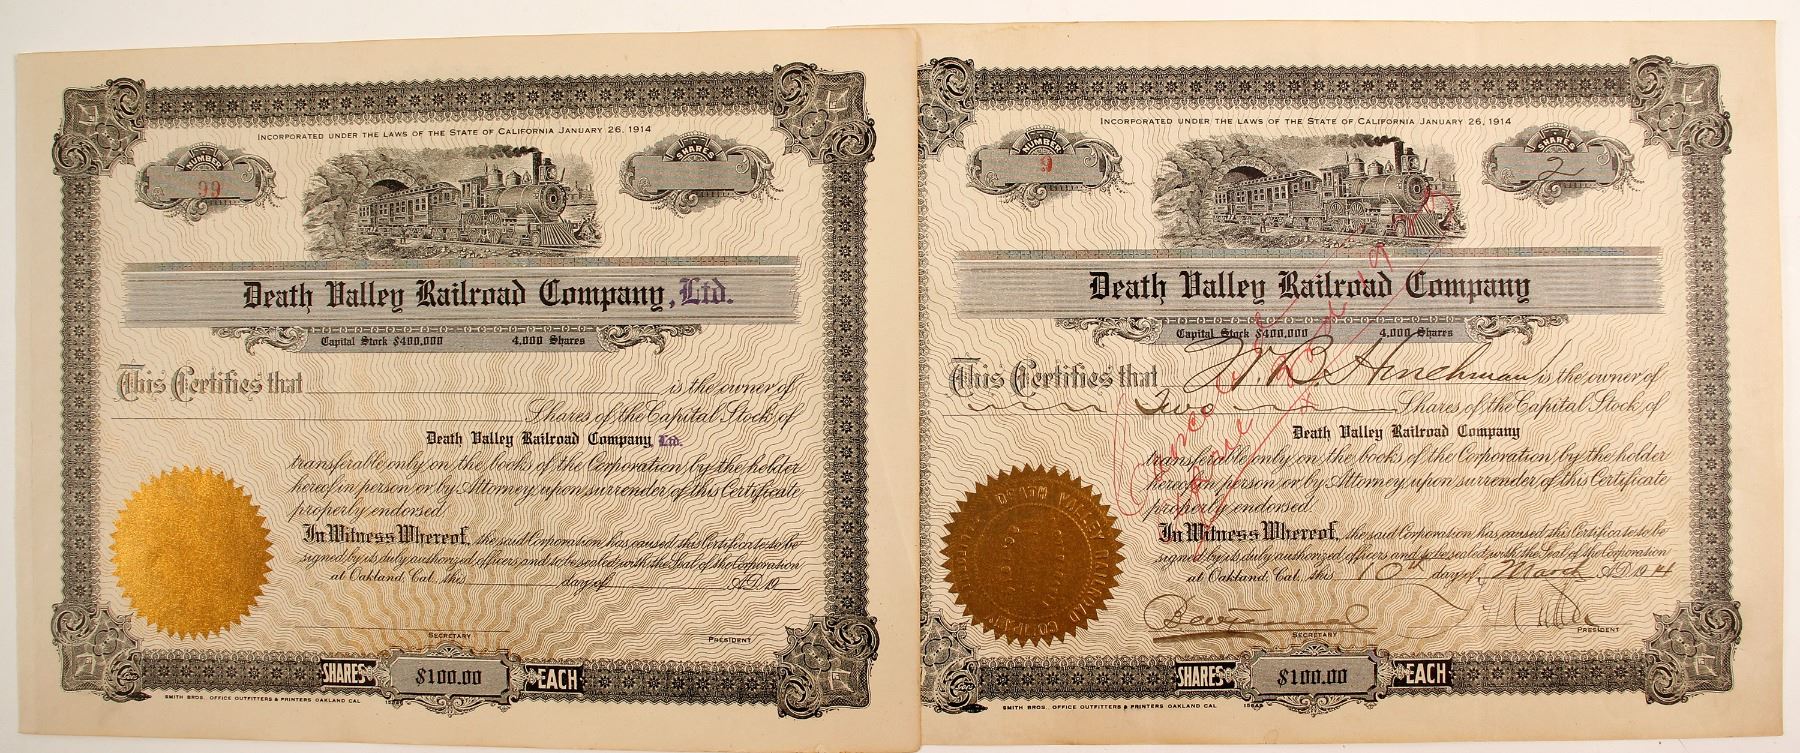 INCORPORATED UNDER THE LAWS OF THE STATE OF CALIFORNIA JANUARY 26, 1914
NUMBER
99
SHARES
Death Valley Railroad Company, Ltd.
Capital Stock $400,000 4,000 Shares
This Certifies that is the owner of
Shares of the Capital Stock of
Death Valley Railroad Company, Ltd.
transferable only on the books of the Corporation by the holder
hereof in person or by Attorney upon surrender of this Certificate
properly endorsed.
In Witness Whereof, the said Corporation has caused this Certificate to be
signed by its duly authorized officers and to be sealed with the Seal of the Corporation
at Oakland, Cal., this day of A.D. 19
SECRETARY
PRESIDENT
SHARES $100.00 EACH
SMITH BROS. OFFICE OUTFITTERS & PRINTERS OAKLAND CAL
INCORPORATED UNDER THE LAWS OF THE STATE OF CALIFORNIA JANUARY 26, 1914
NUMBER
9
SHARES
2
Death Valley Railroad Company
Capital Stock $400,000 4,000 Shares
This Certifies that W. B. Hinchman is the owner of
Two Shares of the Capital Stock of
Death Valley Railroad Company
transferable only on the books of the Corporation by the holder
hereof in person or by Attorney upon surrender of this Certificate
properly endorsed.
In Witness Whereof, the said Corporation has caused this Certificate to be
signed by its duly authorized officers and to be sealed with the Seal of the Corporation
at Oakland, Cal., this 10th day of March A.D. 1914
SECRETARY
PRESIDENT
DEATH VALLEY RAILROAD COMPANY
Cancelled
SHARES $100.00 EACH
SMITH BROS. OFFICE OUTFITTERS & PRINTERS OAKLAND CAL